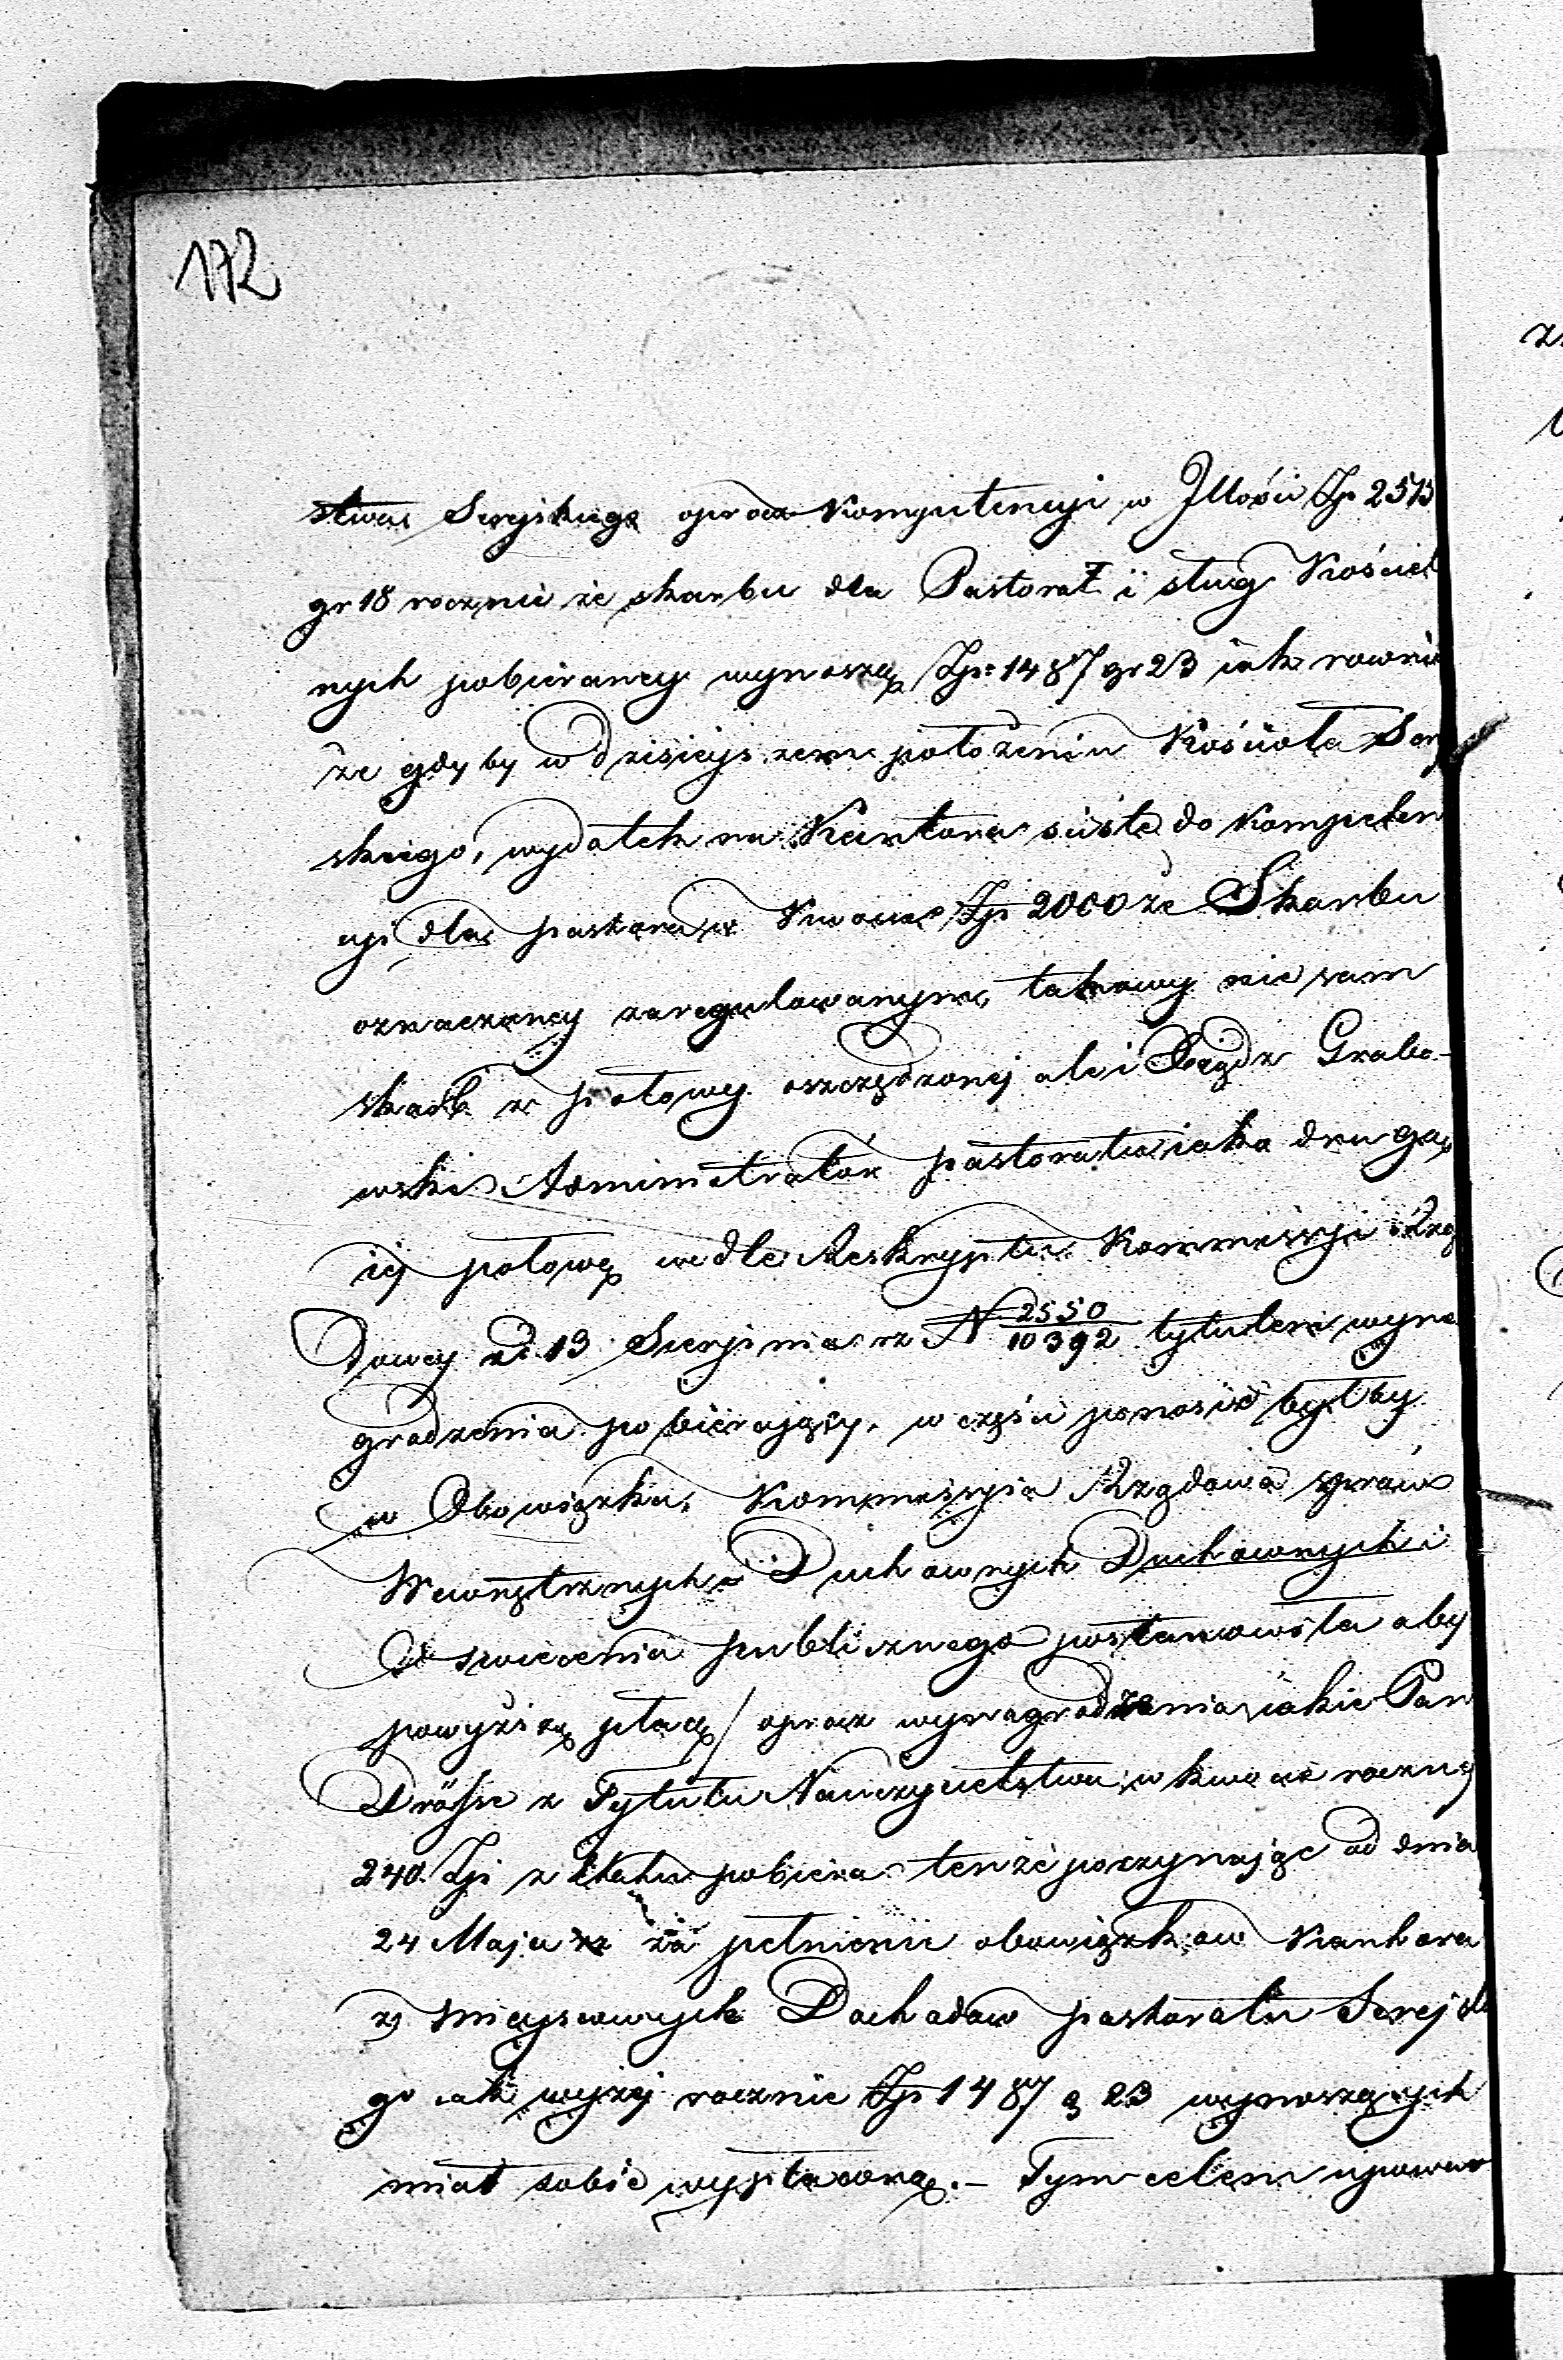 172
stwa Serejskiego oprocz Kompetencyi w Jllości Zp 2513
gr 18 rocznie ze skarbu dla Pastora i sług Kościel
nych pobieraney wynoszą Zp: 1487 gr 23 iak rownie
że gdyby w dzisieyszem położeniu Kościoła Serey
skiego, wydatek na Kantora ściśle do Kompeten
cyi dla pastora w Kwocie Zp 2000 ze Skarbu
oznaczoney zaregulowanym, takowy nie sam
skarb z połowy oszczędzonej ale i Xiądz Grabo-
wski Administrator pastoratu iako drugą
iey połowę wedle Reskryptu Kommissyi Rzą
dowey z d. 13 Sierpnia rz N 2550/10392 tytułem wyna
grodzenia pobierający, w części ponosić byłby
w Obowiązku, Kommissyia Rządowa spraw
Wewnętrznych Duchownych Duchownych i
Oświecenia publicznego postanowiła aby
powyższą płacę / oprocz wynagrodzenia iakie Pan
Dröhse z Tytułu Nauczycielstwa w kwocie roczney
240. Zp z etatu pobiera tenże poczynając od dnia
24 Maja rz za pełnienie obowiązkow Kantora
z mieyscowych Dochodow pastoratu Serejskie
go iak wyzej rocznie Zp 1487 g 23 wynoszących
miał sobie wypłaconą. – Tym celem upowaz